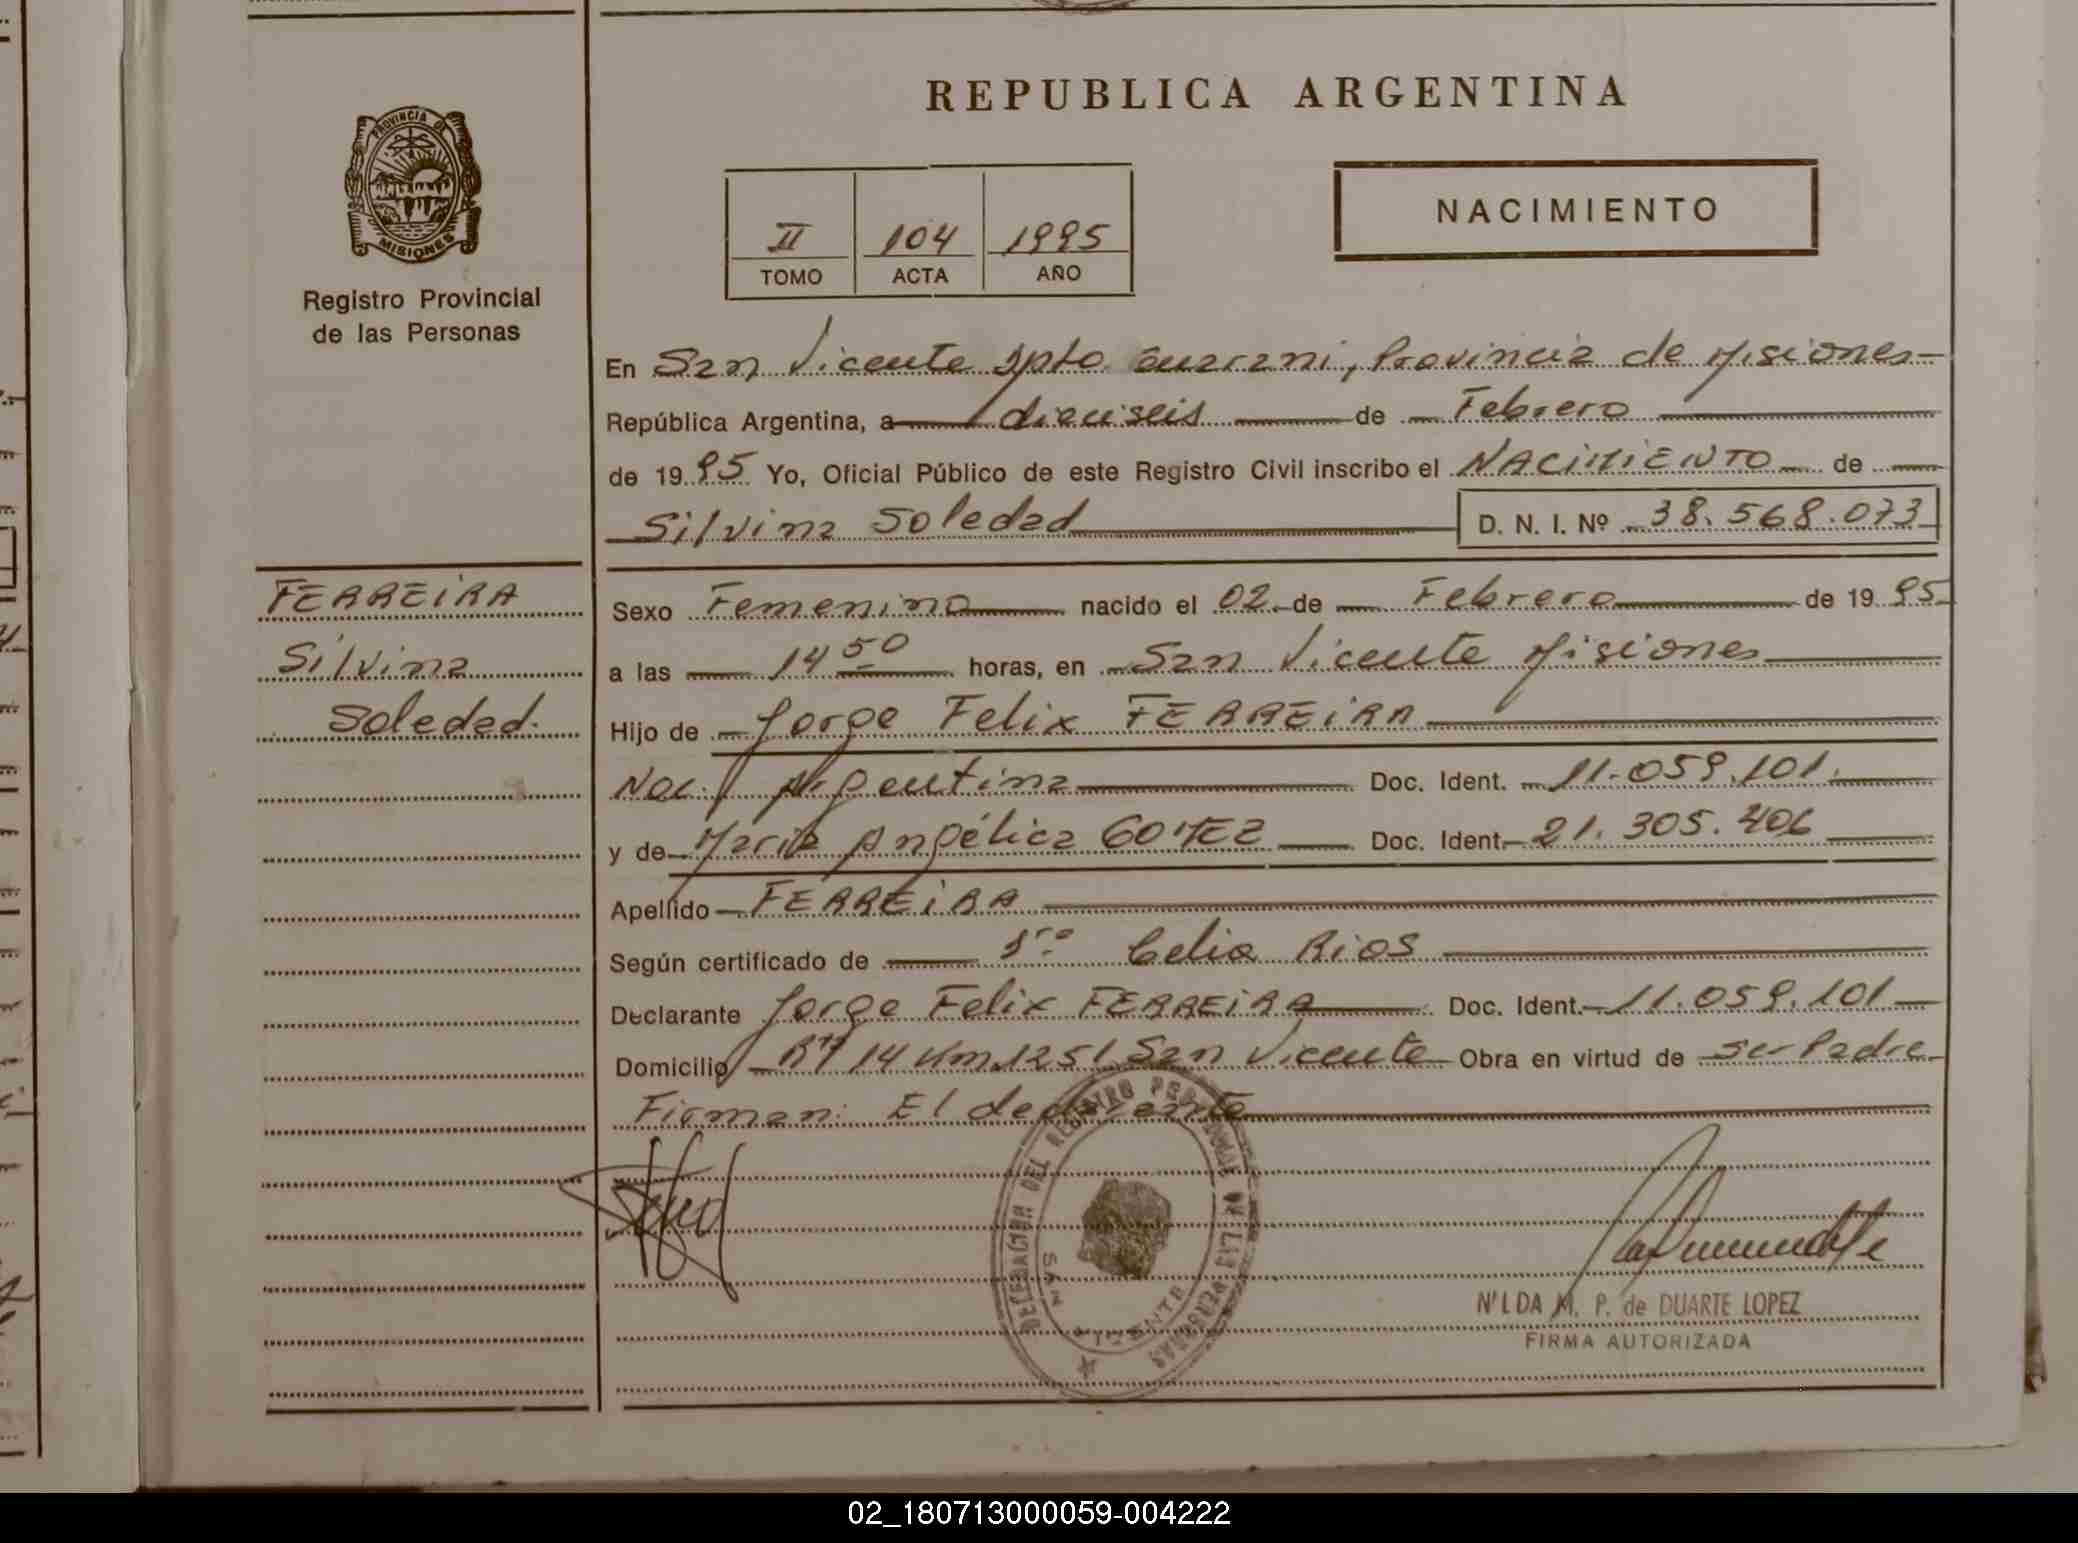 REPUBLICA ARGENTINA
PROVINCIA DE
MISIONES
Registro Provincial
de las Personas
II 104 1995
TOMO ACTA AÑO
NACIMIENTO
En San Vicente Dpto. Guarani, Provincia de Misiones
República Argentina, a dieciseis de Febrero
de 1995 Yo, Oficial Público de este Registro Civil inscribo el NACIMIENTO de
Silvina Soledad D. N. I. Nº 38.568.073
FERREIRA
Silvina
Soledad.
Sexo Femenino nacido el 02 de Febrero de 1995
a las 14 50 horas, en San Vicente Misiones
Hijo de Jorge Felix FERREIRA
Nac. Argentina Doc. Ident. 11.059.101.
y de Maria Angélica GOMEZ Doc. Ident. 21.305.406
Apellido FERREIRA
Según certificado de Celia Rios
Declarante Jorge Felix FERREIRA Doc. Ident. 11.059.101
Domicilio 14 Km 1251 San Vicente Obra en virtud de ser Padre
Firman: El declarante
DELEGACION DEL REGISTRO PROVINCIAL DE LAS PERSONAS
SAN VICENTE
NILDA M. P. de DUARTE LOPEZ
FIRMA AUTORIZADA
02_180713000059-004222